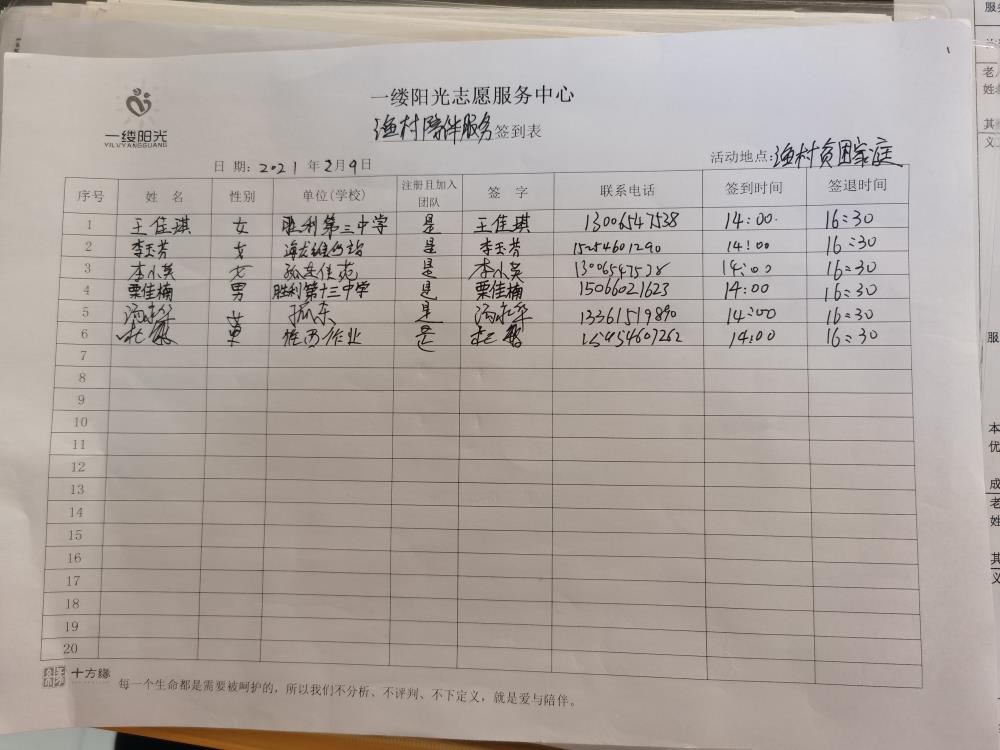 一缕阳光
YILVYANGGUANG
一缕阳光志愿服务中心
渔村陪伴服务签到表
日期:2021年2月9日 活动地点:渔村贫困家庭
序号 姓名 性别 单位(学校) 注册且加入团队 签字 联系电话 签到时间 签退时间
1 王佳琪 女 胜利第三中学 是 王佳琪 13006547538 14:00 16:30
2 李玉芳 女 是 李玉芳 15254601290 14:00 16:30
3 李小英 女 孤东佳苑 是 李小英 14:00 16:30
4 栗佳楠 男 胜利第十三中学 是 栗佳楠 15066021623 14:00 16:30
5 孤东 是 13361519890 14:00 16:30
6 杜 男 作业 是 杜 15954607262 14:00 16:30
7
8
9
10
11
12
13
14
15
16
17
18
19
20
十方缘
每一个生命都是需要被呵护的，所以我们不分析、不评判、不下定义，就是爱与陪伴。